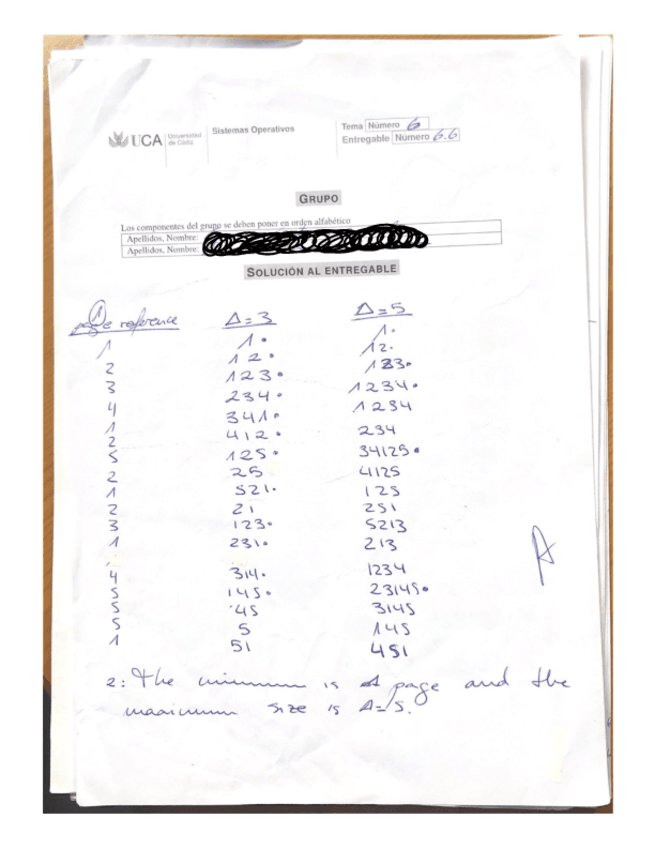 UCA Universidad de Cádiz Sistemas Operativos Tema Número 6
Entregable Número 6.6
GRUPO
Los componentes del grupo se deben poner en orden alfabético
Apellidos, Nombre:
Apellidos, Nombre:
SOLUCIÓN AL ENTREGABLE
1
page reference Δ=3 Δ=5
1 1• 1•
2 12• 12•
3 123• 123•
4 234• 1234•
1 341• 1234
2 412• 234
5 125• 34125•
2 25 4125
1 521• 125
2 21 251
3 123• 5213
1 231• 213
4 314• 1234
5 145• 23145•
5 45 3145
5 5 145
1 51 451
A
2: The minimum is 1 page and the
maximum size is Δ=5.